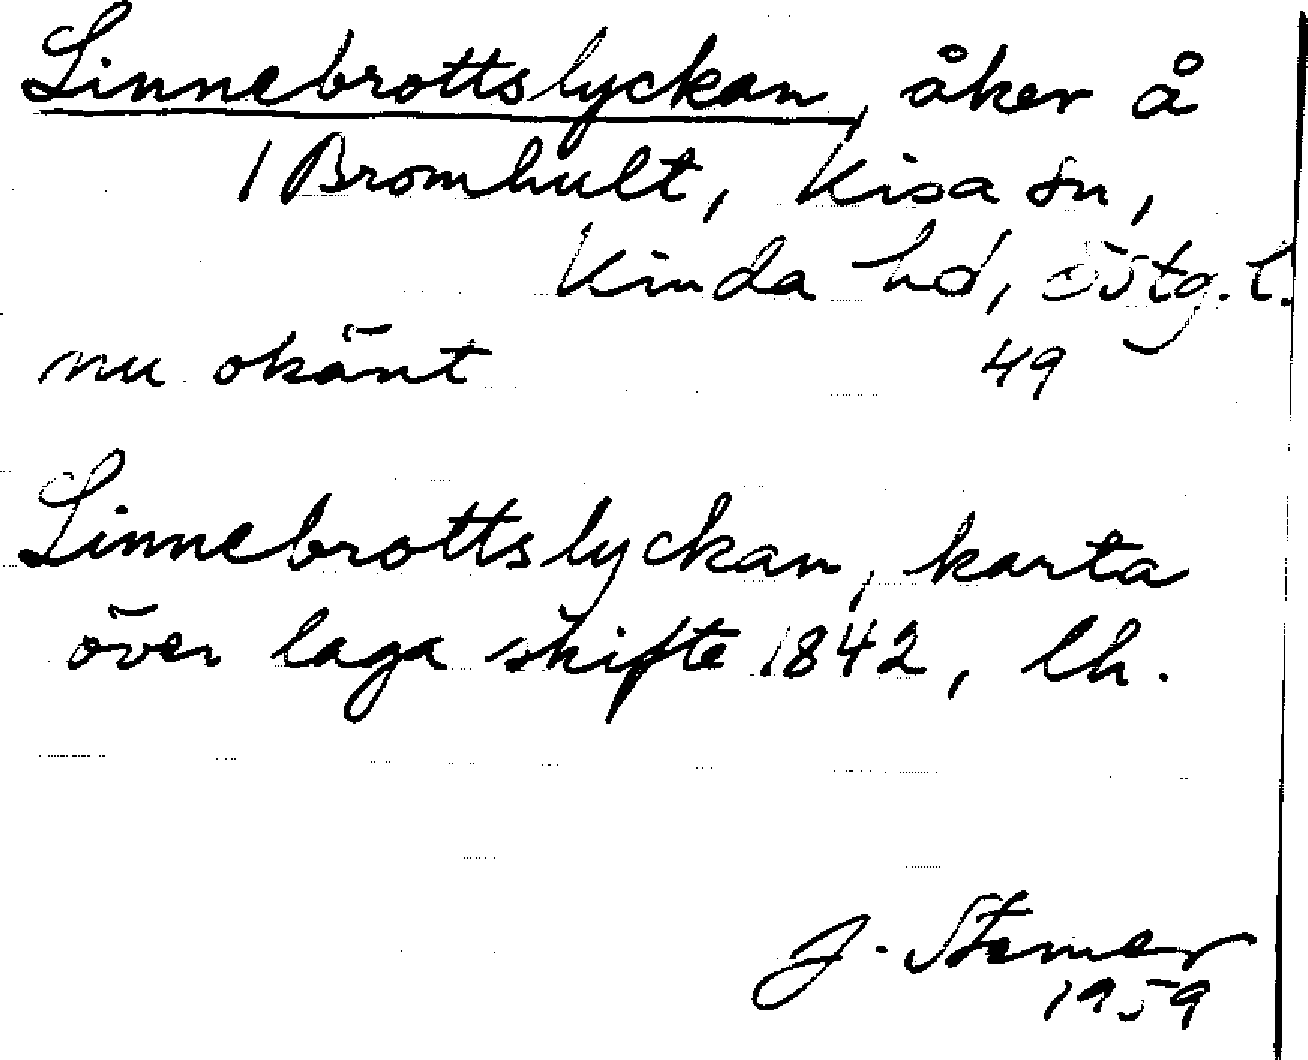 Linnebrottslyckan, åker å
1 Bromhult, Kisa sn,
Kinda hd, Östg. l.
nu okänt 49
Linnebrottslyckan, karta
över laga skifte 1842, lh.
J. Stamer
1959